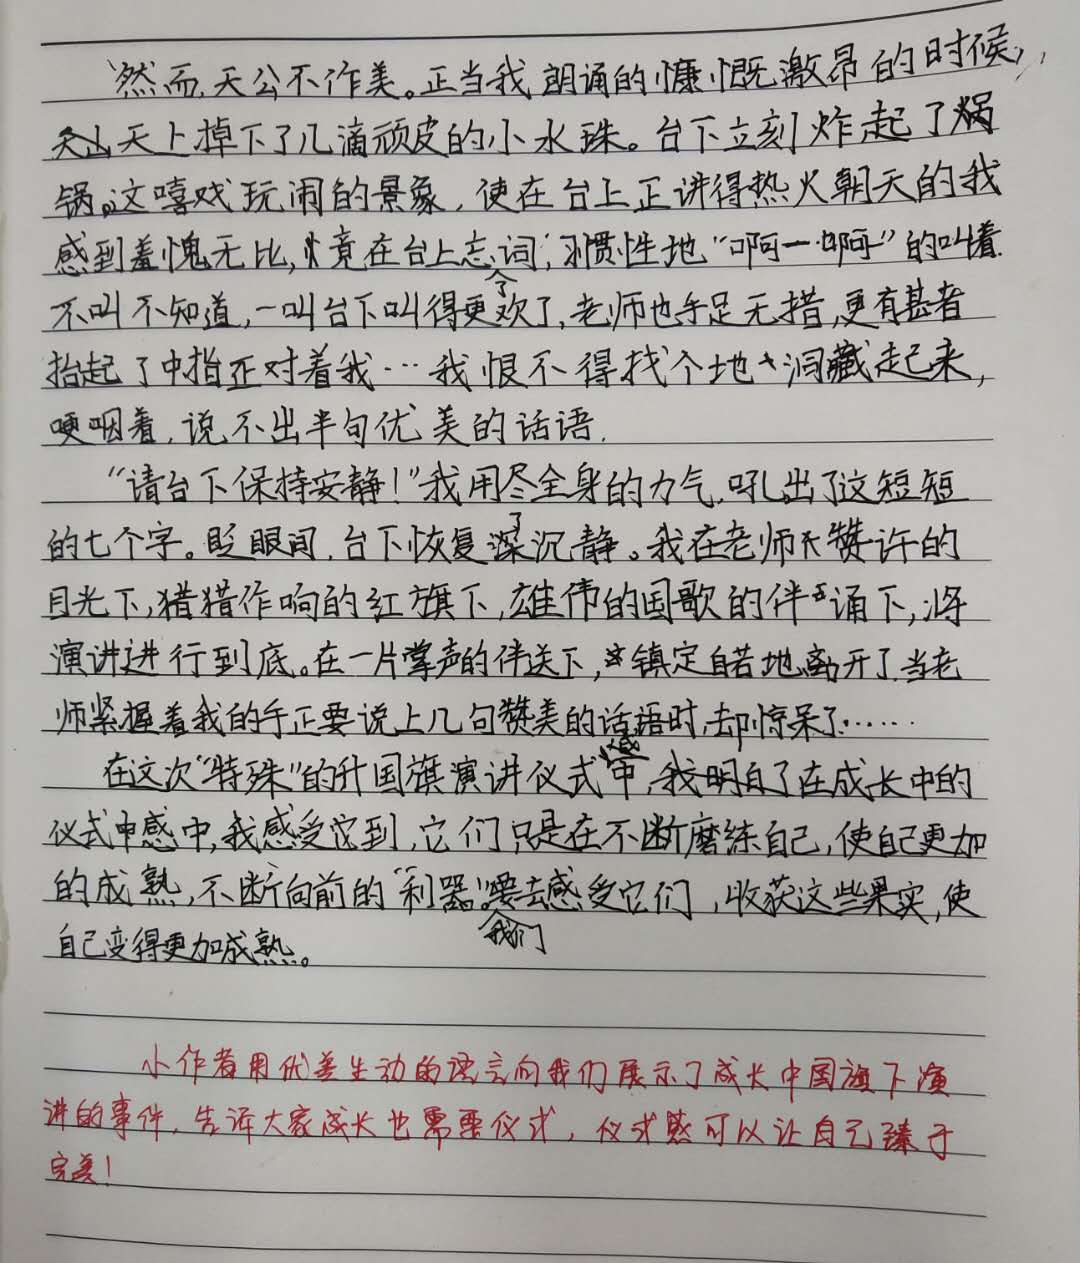 然而,天公不作美。正当我朗诵的慷慨激昂的时候,
天上掉下了几滴顽皮的小水珠。台下立刻炸起了锅
锅。这嘻戏玩闹的景象,使在台上正讲得热火朝天的我
感到羞愧无比,竟在台上忘了词,习惯性地“啊—啊—”的叫着.
不叫不知道,一叫台下叫得更欢了,老师也手足无措,更有甚者
抬起了中指正对着我…我恨不得找个地洞藏起来,
哽咽着,说不出半句优美的话语.
“请台下保持安静!”我用尽全身的力气,吼出了这短短
的七个字。眨眼间,台下恢复了深沉静。我在老师赞许的
目光下,猎猎作响的红旗下,雄伟的国歌的伴诵下,将
演讲进行到底。在一片掌声的伴送下,镇定自若地离开了.当老
师紧握着我的手正要说上几句赞美的话语时,却惊呆了……
在这次“特殊”的升国旗演讲仪式感中,我明白了在成长中的
仪式感中,我感受它到,它们只是在不断磨练自己,使自己更加
的成熟,不断向前的“利器”我们要去感受它们,收获这些果实,使
自己变得更加成熟。
小作者用优美生动的语言向我们展示了成长中国旗下演
讲的事件,告诉大家成长也需要仪式,仪式感可以让自己臻于
完美!